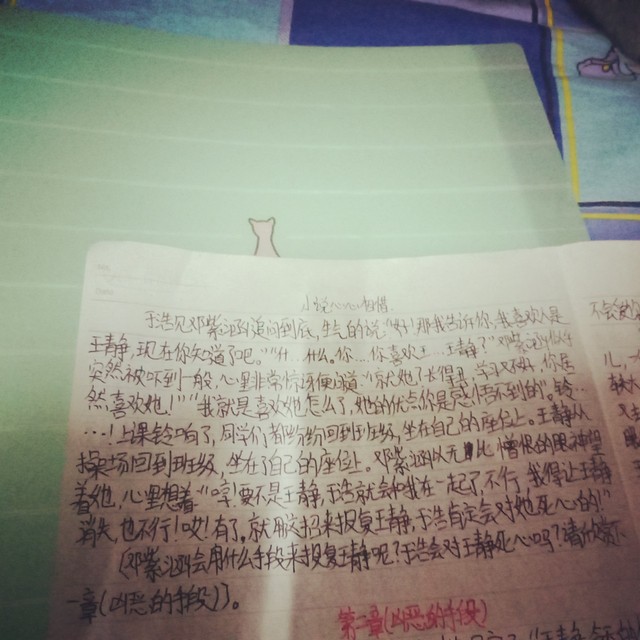 小说心心相惜
于浩见邓紫涵追问到底，生气的说“好！那我告诉你，我喜欢人是
王静，现在你知道了吧。”“什 什么，你…你喜欢王…王静？”邓紫涵
突然被吓到一般，心里非常惊讶便道：“就她？长得丑，学习又不好，你居
然喜欢她！”“我就是喜欢她怎么了，她的优点你是感悟不到的”。铃…
…！上课铃响了，同学们都纷纷回到班级，坐在自己的座位上。王静从
操场回到班级，坐在了自己的座位上。邓紫涵以无比憎恨的眼神望
着她，心里想着“哼！要不是王静，于浩就会和我在一起了，不行，我得让王静
消失，也不行！哎！有了，就用这招来报复王静，于浩肯定会对她死心的！”
（邓紫涵会用什么手段来报复王静呢？于浩会对王静死心吗？请欣赏下
一章（凶恶的手段））。
第二章（凶恶的手段）
不会的
儿，